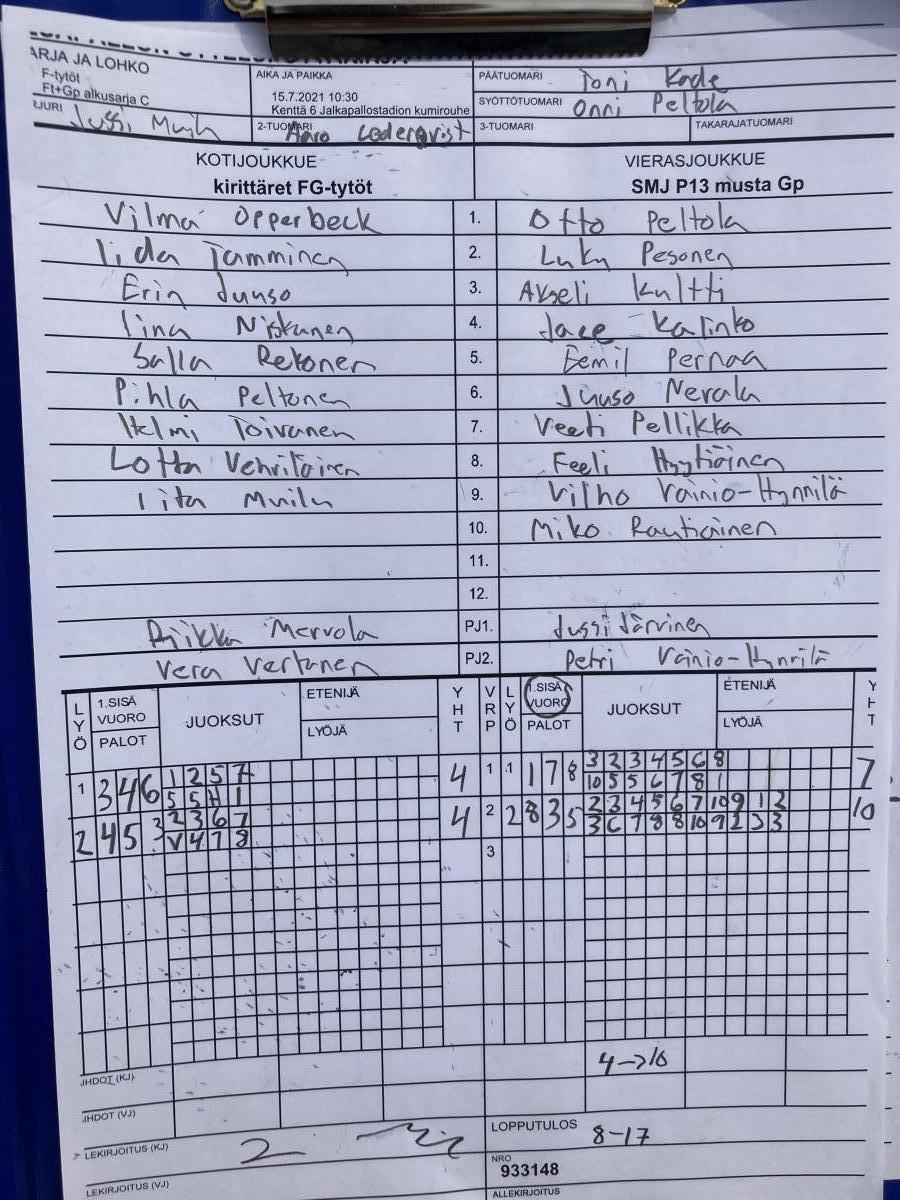 ARJA JA LOHKO
F-tytöt
Ft+Gp alkusarja C
AIKA JA PAIKKA
15.7.2021 10:30
Kenttä 6 Jalkapallostadion kumirouhe
PÄÄTUOMARI Toni Kade
SYÖTTÖTUOMARI Onni Peltola
Jussi
2-TUOMARI Aaro Cederqvist
3-TUOMARI
TAKARAJATUOMARI
KOTIJOUKKUE VIERASJOUKKUE
kirittäret FG-tytöt SMJ P13 musta Gp
Vilma Opperbeck 1. Otto Peltola
Iida Tamminen 2. Luky Pesonen
Erin Juuso 3. Akseli Kultti
Iina Niskanen 4. Jace Kalinko
Salla Rekonen 5. Eemil Pernaa
Pihla Peltonen 6. Juuso Nevala
Helmi Toivanen 7. Veeti Pellikka
Lotta Vehviläinen 8. Feeli Hyytiäinen
Iita 9. Vilho Vainio-Hynnilä
10. Miko Rautiainen
11.
12.
Riikka Mervola PJ1. Jussi Järvinen
Vera Vertanen PJ2. Petri Vainio-Hynnilä
LYÖ 1.SISÄ VUORO PALOT JUOKSUT ETENIJÄ LYÖJÄ YHT VRP LYÖ 1.SISÄ VUORO PALOT JUOKSUT ETENIJÄ LYÖJÄ YHT
1 3 4 6 1 2 5 7 4 1 1 1 7 8 3 2 3 4 5 6 8 7
5 5 H 1 10 5 5 6 7 8 1
2 4 5 3 2 3 6 7 4 2 2 8 3 5 2 3 4 5 6 7 10 9 1 2 10
V 4 7 8 3 6 7 8 8 10 9 2 3 3
3
4->10
JHDOT (KJ)
JHDOT (VJ)
LEKIRJOITUS (KJ)
LOPPUTULOS 8-17
LEKIRJOITUS (VJ)
NRO
933148
ALLEKIRJOITUS